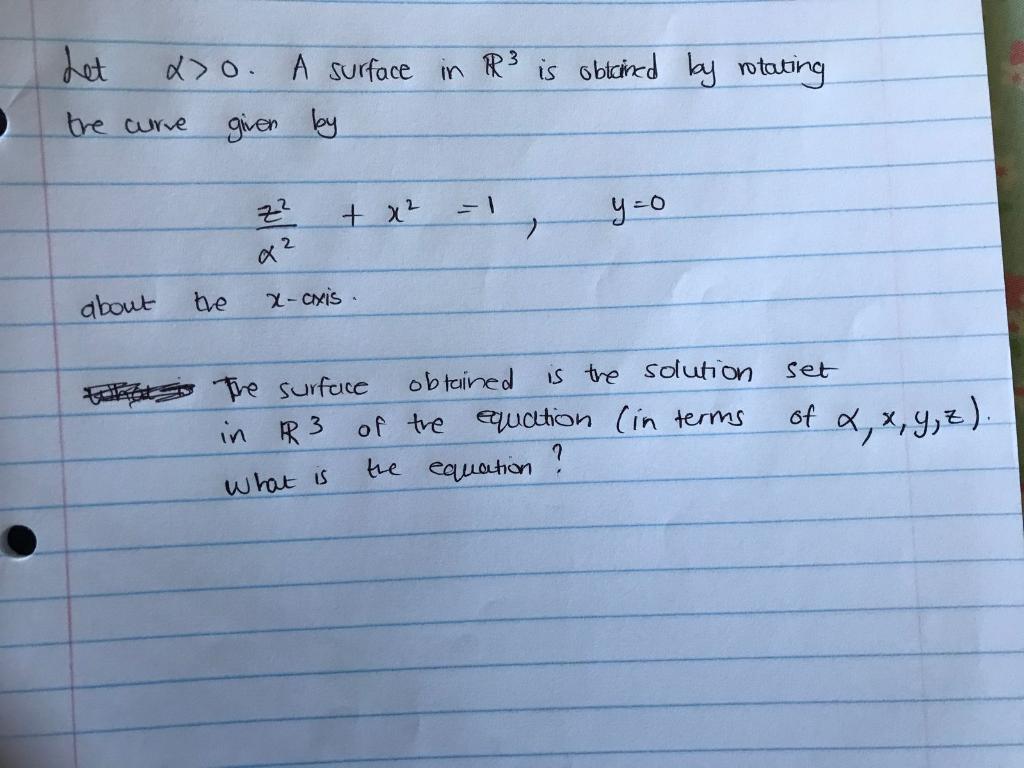 Let α>0. A surface in ℝ³ is obtained by rotating
the curve given by
z²/α² + x² = 1, y=0
about the x-axis.
The surface obtained is the solution set
in ℝ3 of the equation (in terms of α, x, y, z).
What is the equation?